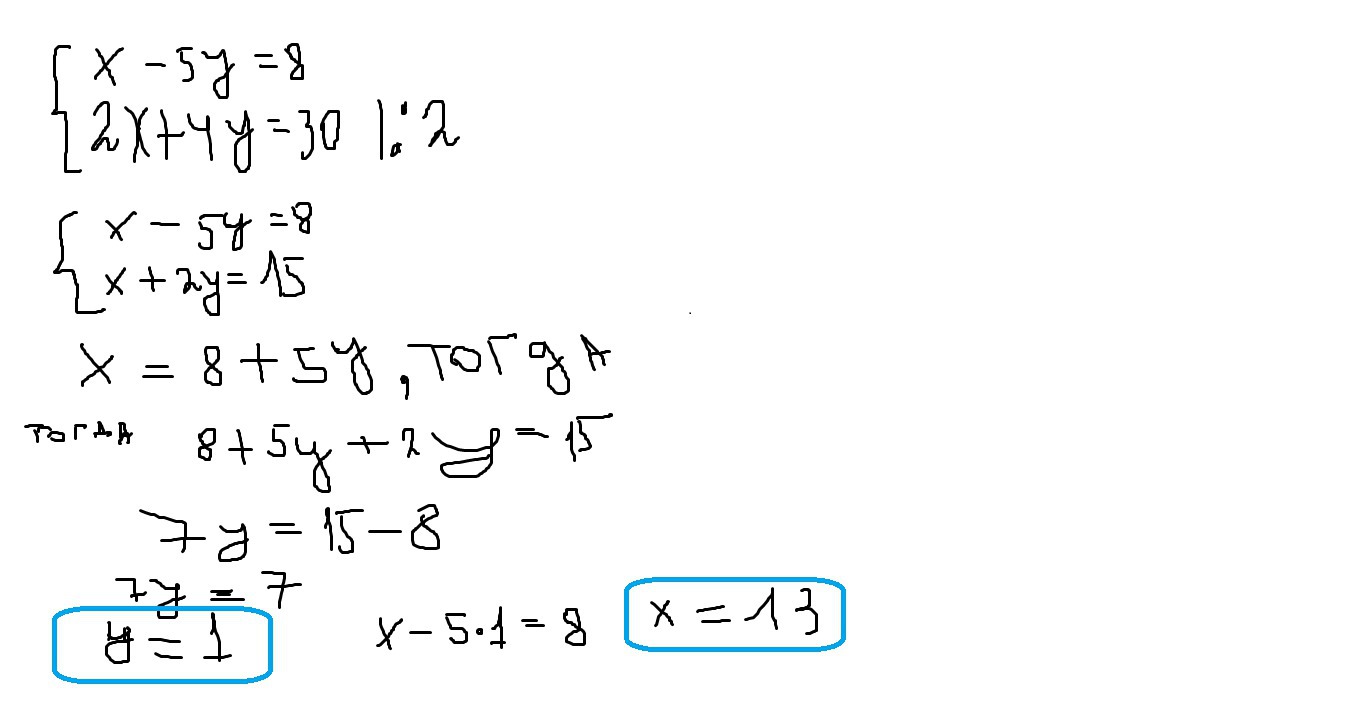 x - 5y = 8
2x + 4y = 30 |:2
x - 5y = 8
x + 2y = 15
x = 8 + 5y, тогда
тогда 8 + 5y + 2y = 15
7y = 15 - 8
7y = 7
y = 1
x - 5·1 = 8
x = 13